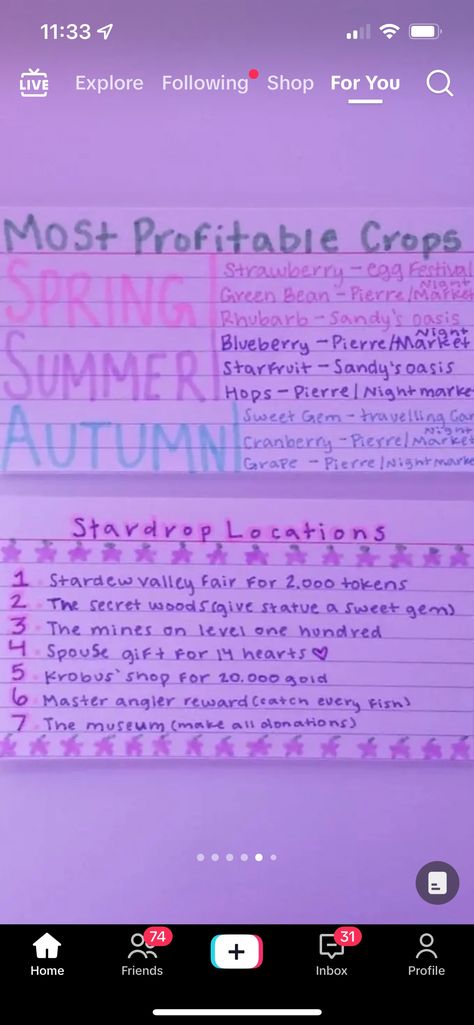 11:33
LIVE Explore Following Shop For You
Most Profitable Crops
SPRING
Strawberry - egg Festival
Green Bean - Pierre/Night Market
Rhubarb - Sandy's oasis
SUMMER
Blueberry - Pierre/Night Market
Starfruit - Sandy's oasis
Hops - Pierre/Night marke
AUTUMN
Sweet Gem - travelling Car
Cranberry - Pierre/Night Market
Grape - Pierre/Night marke
Stardrop Locations
1 Stardew valley fair for 2.000 tokens
2 The secret woods (give statue a sweet gem)
3 The mines on level one hundred
4 Spouse gift for 14 hearts
5 Krobus' shop for 20.000 gold
6 Master angler reward (catch every fish)
7 The museum (make all donations)
74 31
Home Friends Inbox Profile